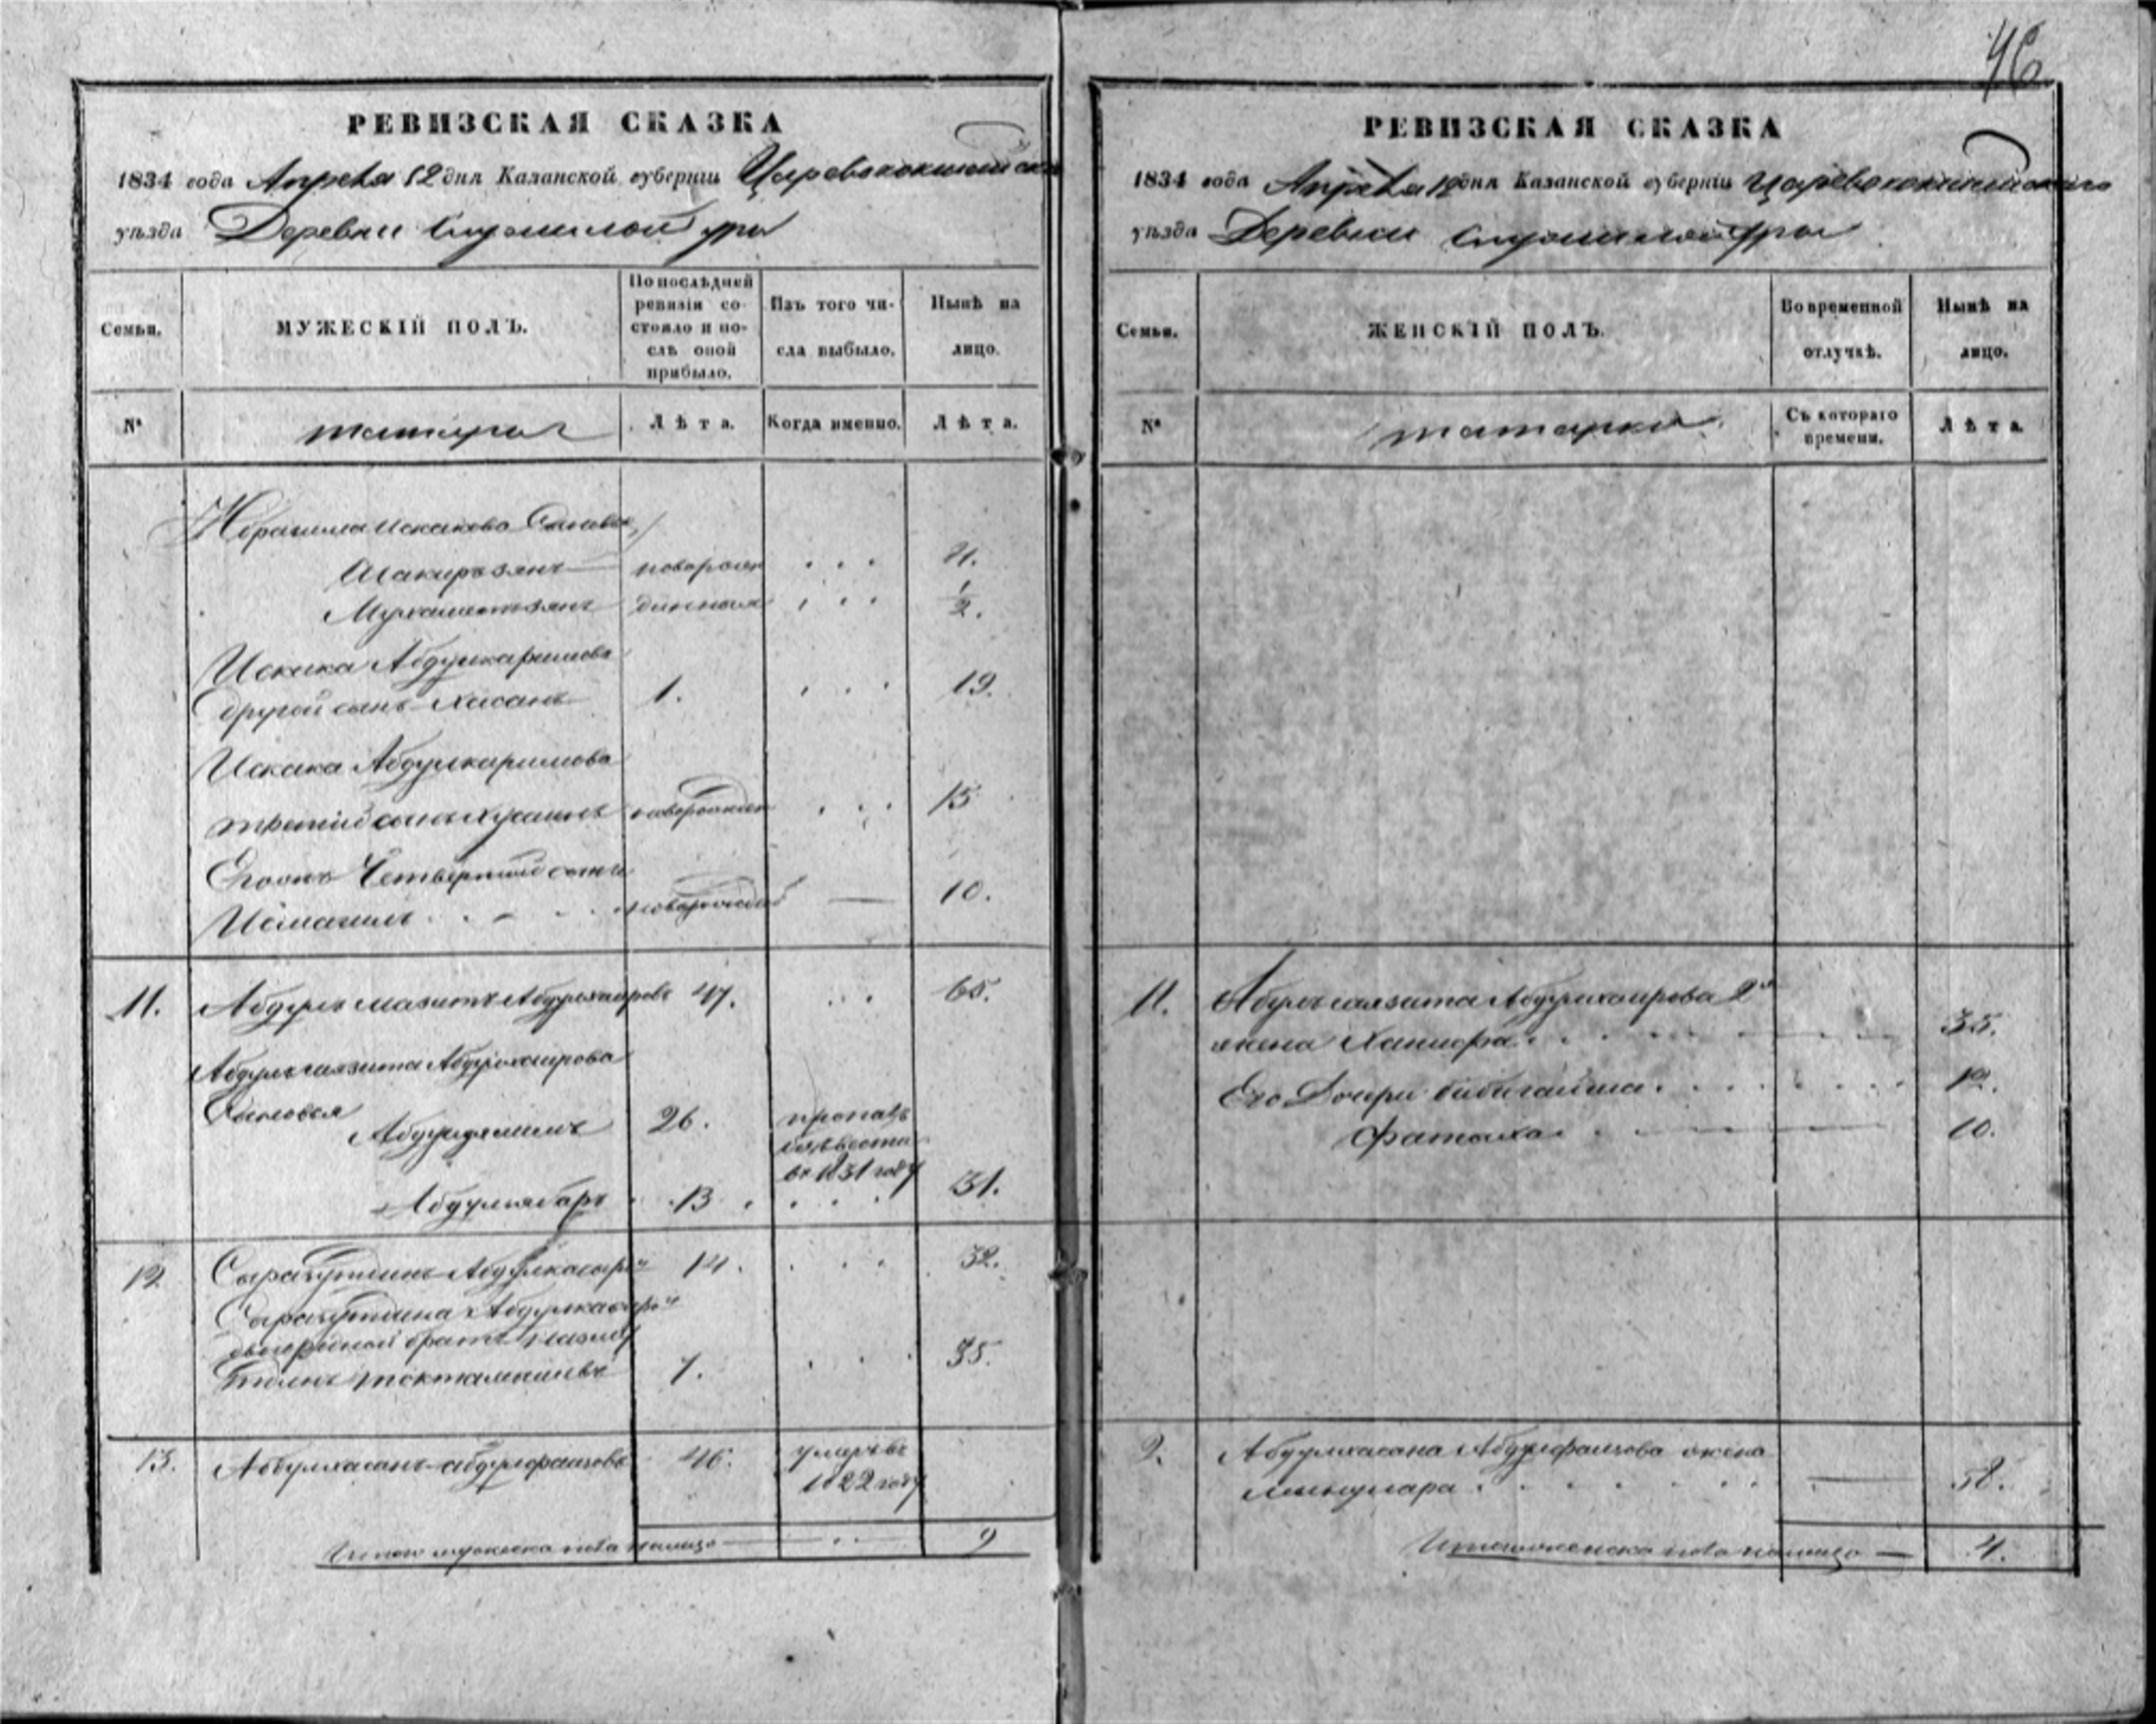 46
РЕВИЗСКАЯ СКАЗКА
1834 года Апреля 12 дня Казанской губернiи Царевококшайска
уѣзда Деревни ура
Семьи.
МУЖЕСКIЙ ПОЛЪ.
По послѣдней ревизiи состояло и послѣ оной прибыло.
Изъ того числа выбыло.
Нынѣ на лицо.
№
татара
Лѣта.
Когда именно.
Лѣта.
Ибрагима Искакова Сыновья
Шакирзянъ новорож 4.
Мухаметзянъ денныя 1/2.
Искака Абдулкаримова
другой сынъ Хасанъ 1. 19.
Искака Абдулкаримова
третий сынъ Хусаинъ новорожден 15
Егоонъ Четвертый сынъ
Исмагилъ новорожден — 10.
11. Абдулъ Абдулхаирова 47. 65.
Абдулхаирова
Сыновья
26. пропалъ
безъ вести
въ 1831 году
Абдулзябаръ 13 31.
12 Сыразутдинъ 14. 32.
Сыразутдина
двоюродной братъ
7. 35.
13. Абдулхасанъ абдулфаизовъ 46. умеръ въ
1822 году
Итого мужеска пола налицо 9
РЕВИЗСКАЯ СКАЗКА
1834 года Апреля 12 дня Казанской губернiи Царевококшайскаго
уѣзда Деревни ура
Семьи.
ЖЕНСКIЙ ПОЛЪ.
Во временной отлучкѣ.
Нынѣ на лицо.
№
татарки
Съ котораго времени.
Лѣта.
11. Абдулхаирова 2я
жена Ханифа 35.
Его Дочери бибигайша 12.
Фатыха 10.
Абдулхасана Абдулфаизова жена
58.
Итого женска пола налицо — 4.